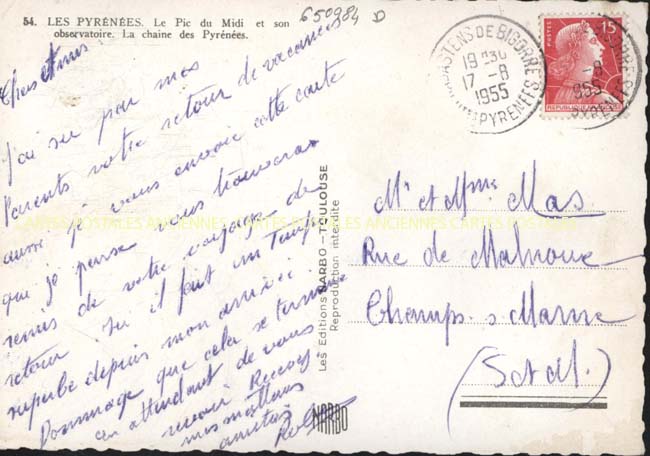 650984 D
54. LES PYRÉNÉES. Le Pic du Midi et son
observatoire. La chaine des Pyrénées.
Chers Amis
J'ai su par mes
Parents votre retour de vacances
aussi je vous envoie cette carte
qui je pense vous trouveras
remis de votre voyage de
retour. Ici il fait un Temps
superbe depuis mon arrivée
Dommage que cela se termine
en attendant de vous
revoir Recevez
mes meilleurs
amitiés
Les Editions NARBO - TOULOUSE
Reproduction interdite
NARBO
RABASTENS DE BIGORRE
19 H30
17 - 8
1955
PYRENEES
POSTES
15
REPUBLIQUE FRANÇAISE
Mr et Mme Mas
Rue de Malnoue
Champs s Marne
(S et M.)
CARTES POSTALES ANCIENNES CARTES POSTALES ANCIENNES CARTES POSTALES